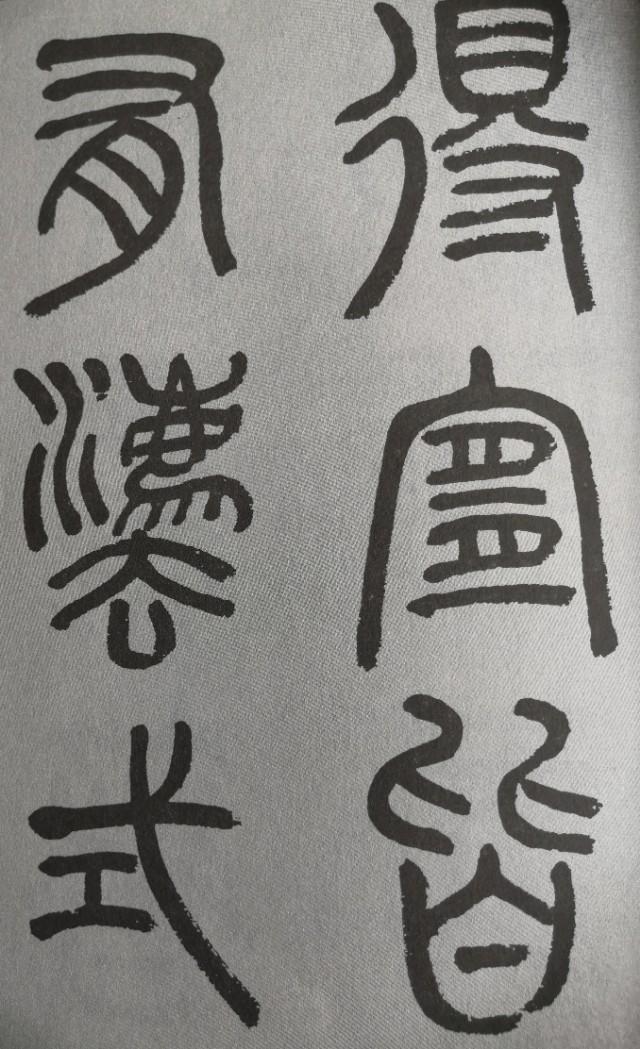 得宜皆
有灋式